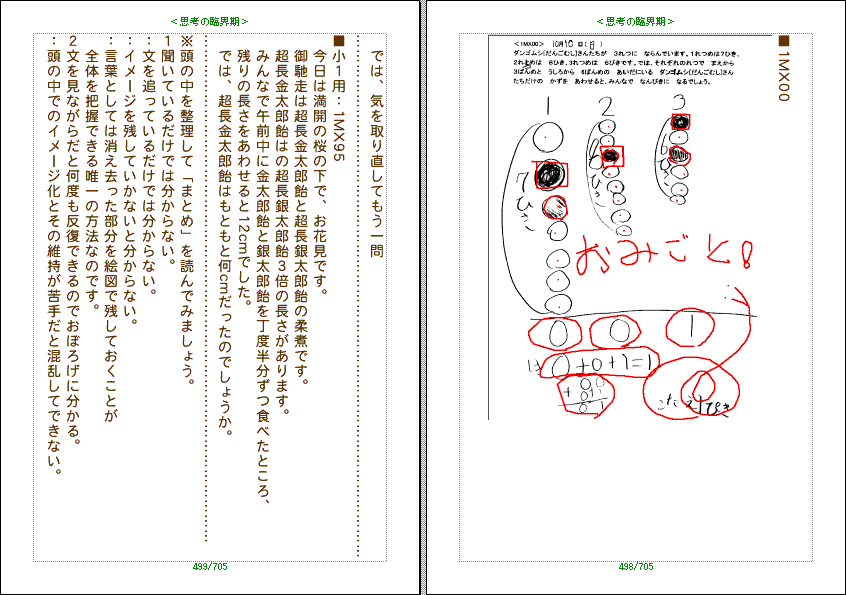 <思考の臨界期>
■ 1MX00
<1MX00> 10月10日(日)
ダンゴムシ(だんごむし)さんたちが 3れつに ならんでいます。1れつめは7ひき、
2れつめは 8ひき、3れつめは 6ぴきです。では、それぞれのれつで まえから
3ばんめと うしろから 6ばんめの あいだにいる ダンゴムシ(だんごむし)さん
たちだけの かずを あわせると、みんなで なんびきに なるでしょう。
1 2 3
7ひき
ひき
ひき
おみごと!
0 0 1
0+0+1=1
こたえ1ぴき
498/705
<思考の臨界期>
では、気を取り直してもう一問
■小1用:1MX95
今日は満開の桜の下で、お花見です。
御馳走は超長金太郎飴と超長銀太郎飴の柔煮です。
超長金太郎飴はの超長銀太郎飴3倍の長さがあります。
みんなで午前中に金太郎飴と銀太郎飴を丁度半分ずつ食べたところ、
残りの長さをあわせると12cmでした。
では、超長金太郎飴はもともと何cmだったのでしょうか。
※頭の中を整理して「まとめ」を読んでみましょう。
1聞いているだけでは分からない。
:文を追っているだけでは分からない。
:イメージを残していかないと分からない。
:言葉としては消え去った部分を絵図で残しておくことが
全体を把握できる唯一の方法なのです。
2文を見ながらだと何度も反復できるのでおぼろげに分かる。
:頭の中でのイメージ化とその維持が苦手だと混乱してできない。
499/705